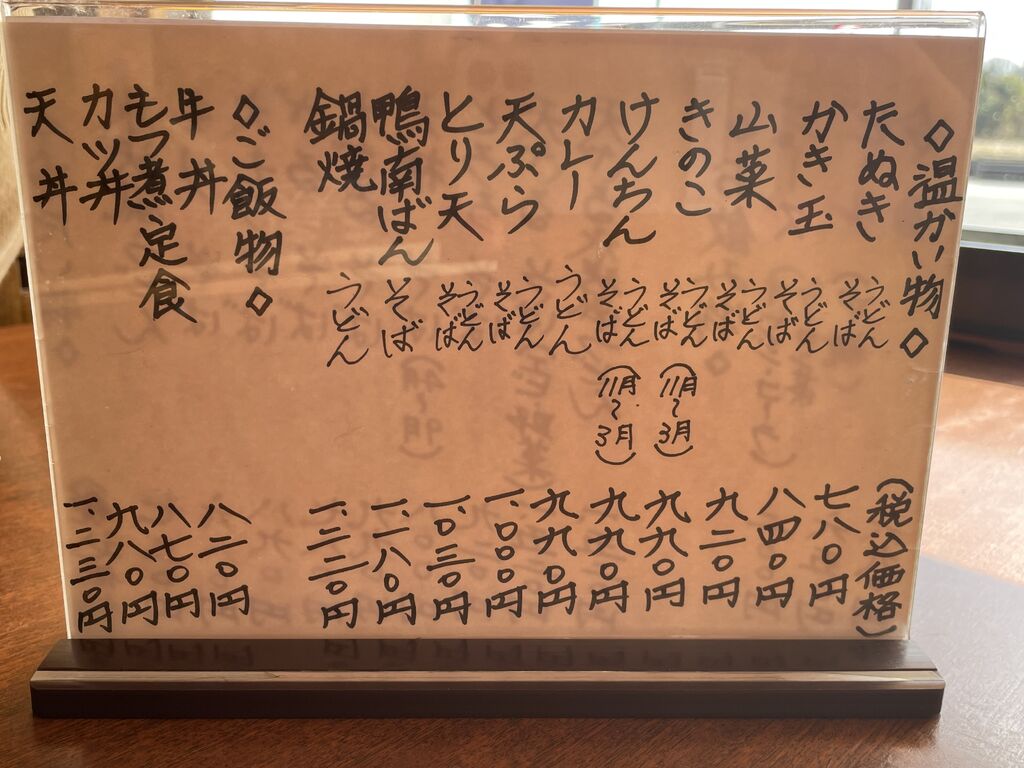 ◇温かい物◇ (税込価格)
たぬき うどん そば 七八〇円
かき玉 うどん そば 八四〇円
山菜 うどん そば 九二〇円
きのこ うどん そば (11月~3月) 九九〇円
けんちん うどん そば (11月~3月) 九九〇円
カレー うどん 九九〇円
天ぷら うどん そば 一、〇〇〇円
とり天 うどん そば 一、〇三〇円
鴨南ばん そば 一、一八〇円
鍋焼 うどん 一、二二〇円
◇ご飯物◇
牛丼 八二〇円
もつ煮定食 八七〇円
カツ丼 九八〇円
天丼 一、二三〇円